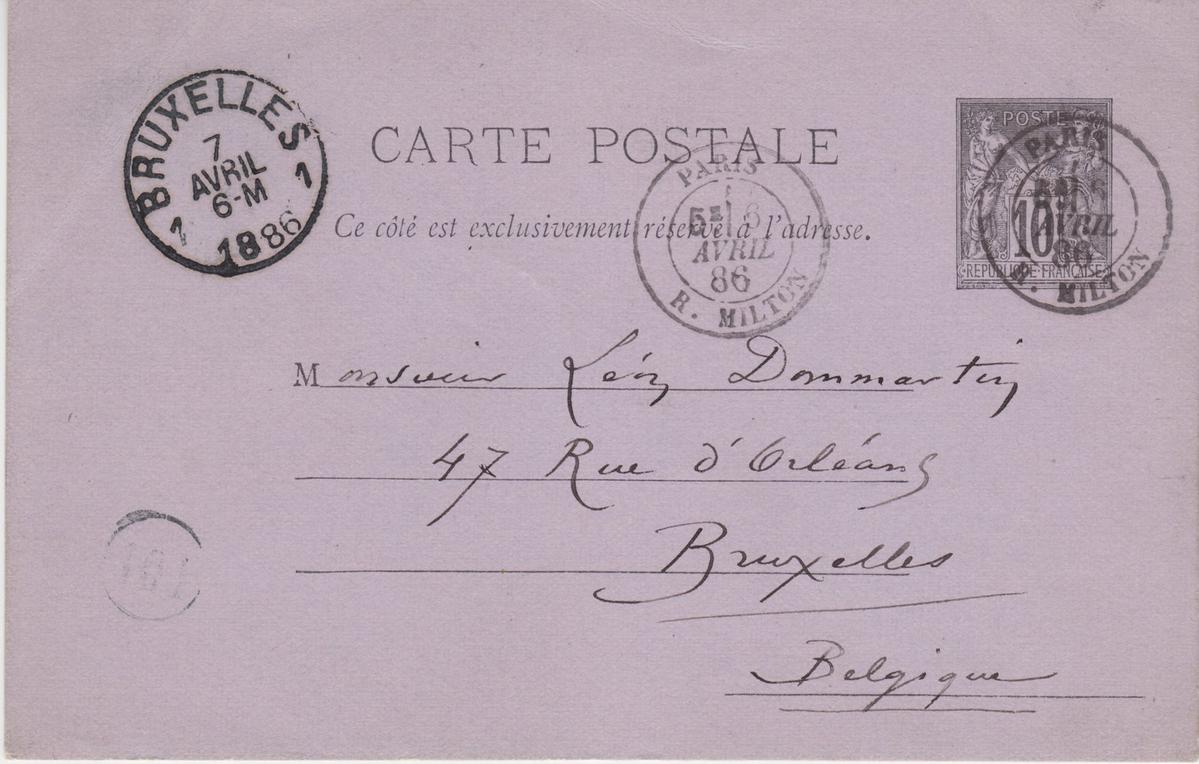 BRUXELLES
7
AVRIL
6-M
1 1
1886
CARTE POSTALE
Ce côté est exclusivement réservé à l'adresse.
PARIS
5E 6
AVRIL
86
R. MILTON
POSTE
10
REPUBLIQUE FRANÇAISE
PARIS
AVRIL
86
R. MILTON
Monsieur Léon Dommartin
47 Rue d'Orléans
Bruxelles
Belgique